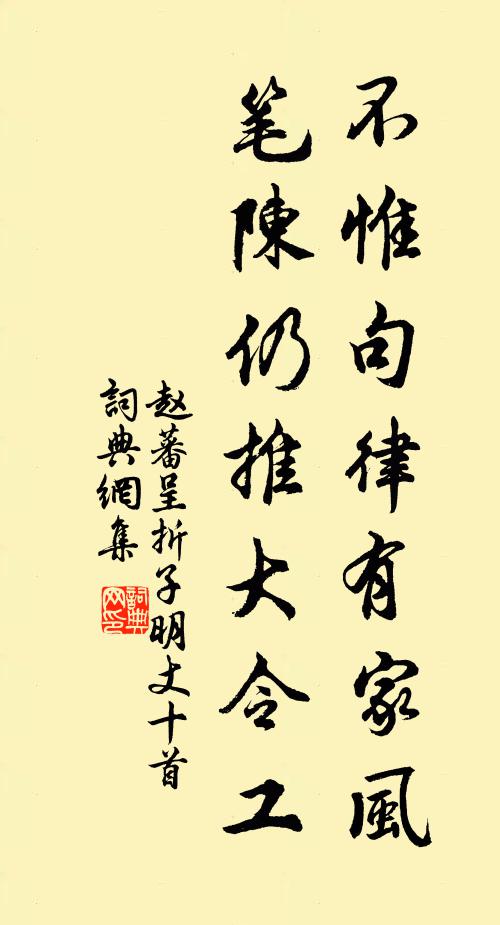 不惟句律有家風
笔陳仍推大令工
赵蕃呈折子明丈十首
詞典網集
詞典网印